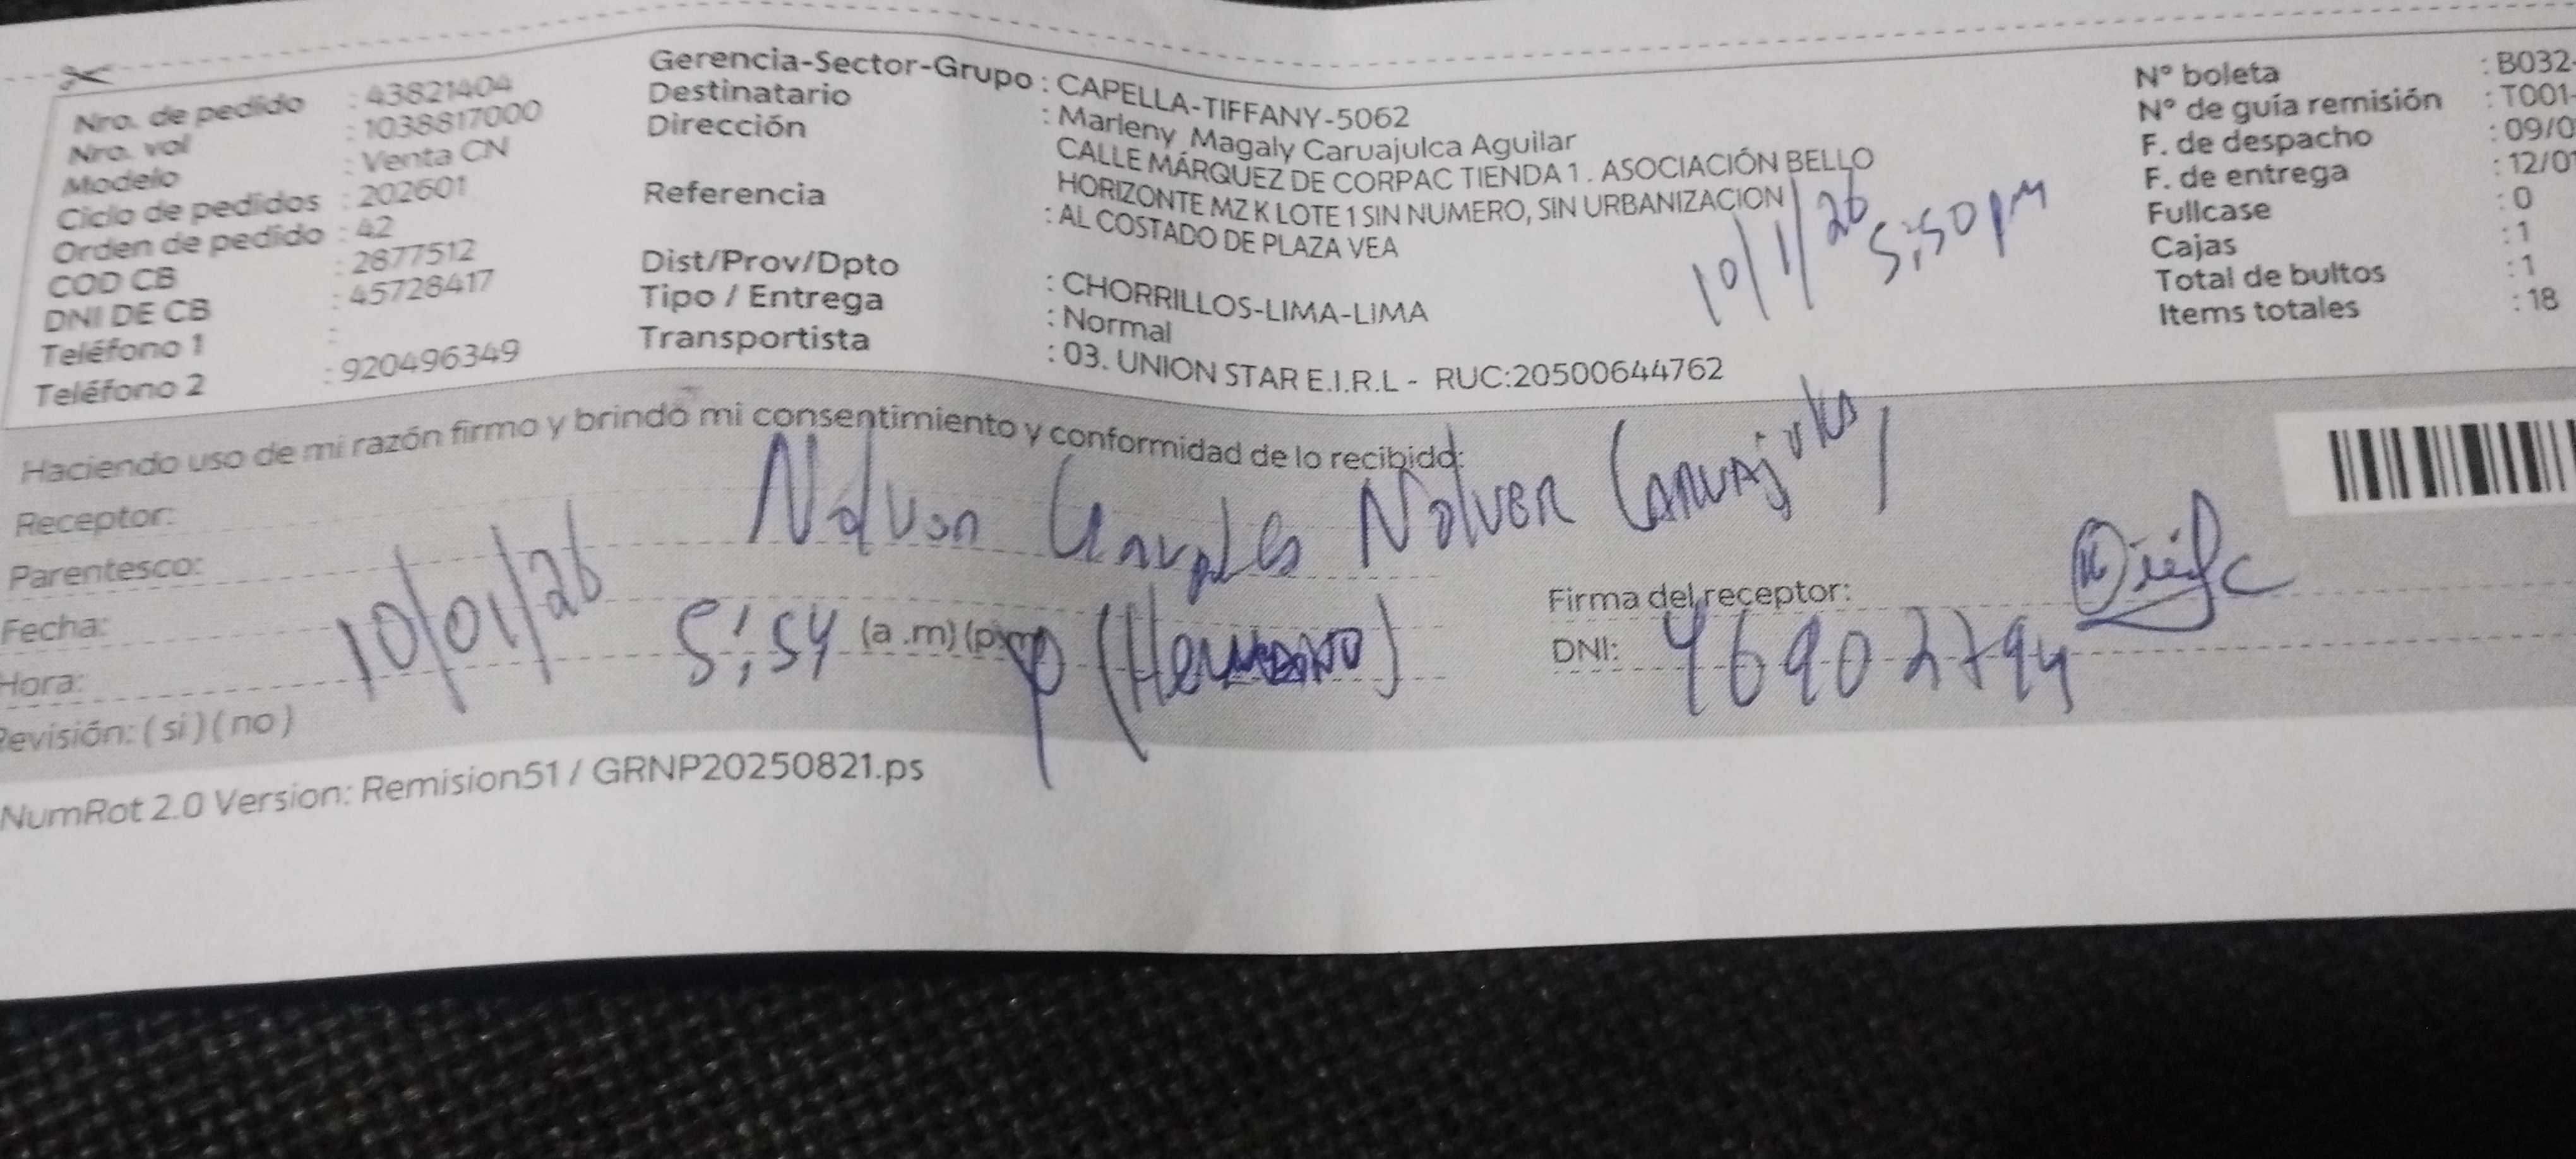 Nro. de pedido : 43821404
Nro. vol : 1038817000
Modelo : Venta CN
Ciclo de pedidos : 202601
Orden de pedido : 42
COD CB : 2877512
DNI DE CB : 45728417
Teléfono 1 :
Teléfono 2 : 920496349
Gerencia-Sector-Grupo : CAPELLA-TIFFANY-5062
Destinatario : Marleny Magaly Caruajulca Aguilar
Dirección CALLE MÁRQUEZ DE CORPAC TIENDA 1. ASOCIACIÓN BELLO
HORIZONTE MZ K LOTE 1 SIN NUMERO, SIN URBANIZACION
Referencia : AL COSTADO DE PLAZA VEA
Dist/Prov/Dpto : CHORRILLOS-LIMA-LIMA
Tipo / Entrega : Normal
Transportista : 03. UNION STAR E.I.R.L - RUC:20500644762
10/1/26 5:50 pm
N° boleta : B032-
N° de guía remisión : T001-
F. de despacho : 09/0
F. de entrega : 12/01
Fullcase : 0
Cajas : 1
Total de bultos : 1
Items totales : 18
Haciendo uso de mi razón firmo y brindo mi consentimiento y conformidad de lo recibido:
Receptor: Nolver
Parentesco:
Fecha: 10/01/26
Hora: 5:54 (a .m) (p (Hermano)
Firma del receptor:
DNI: 46902794
Revisión: ( si ) ( no )
NumRot 2.0 Version: Remision51 / GRNP20250821.ps